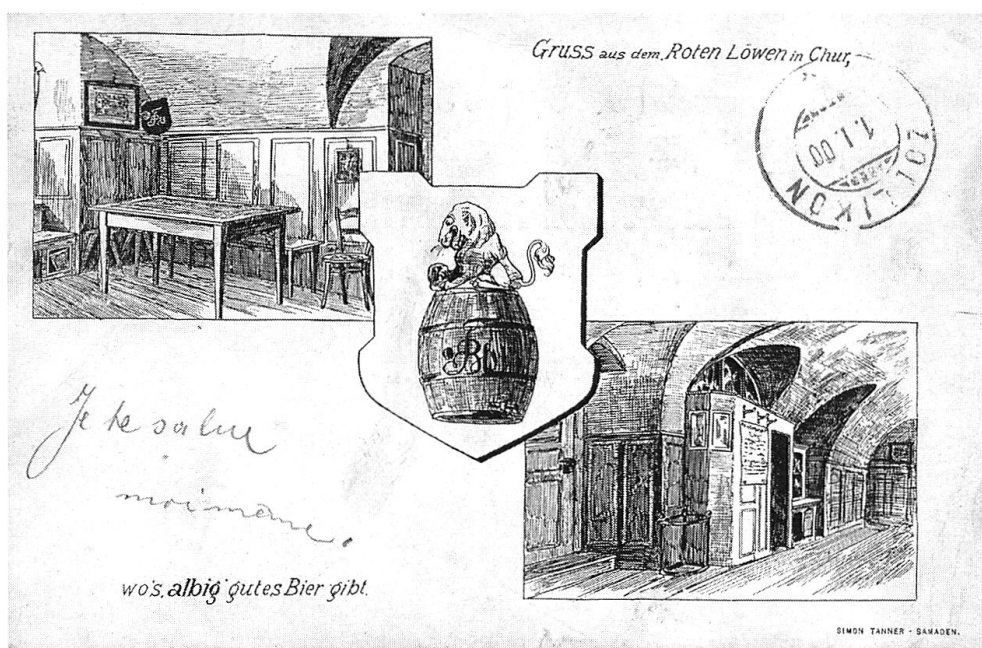 Gruss aus dem Roten Löwen in Chur,
ZOLLIKON
1.I.00
Je te salue
moi même.
wo's „albig“ gutes Bier gibt.
SIMON TANNER - SAMADEN.